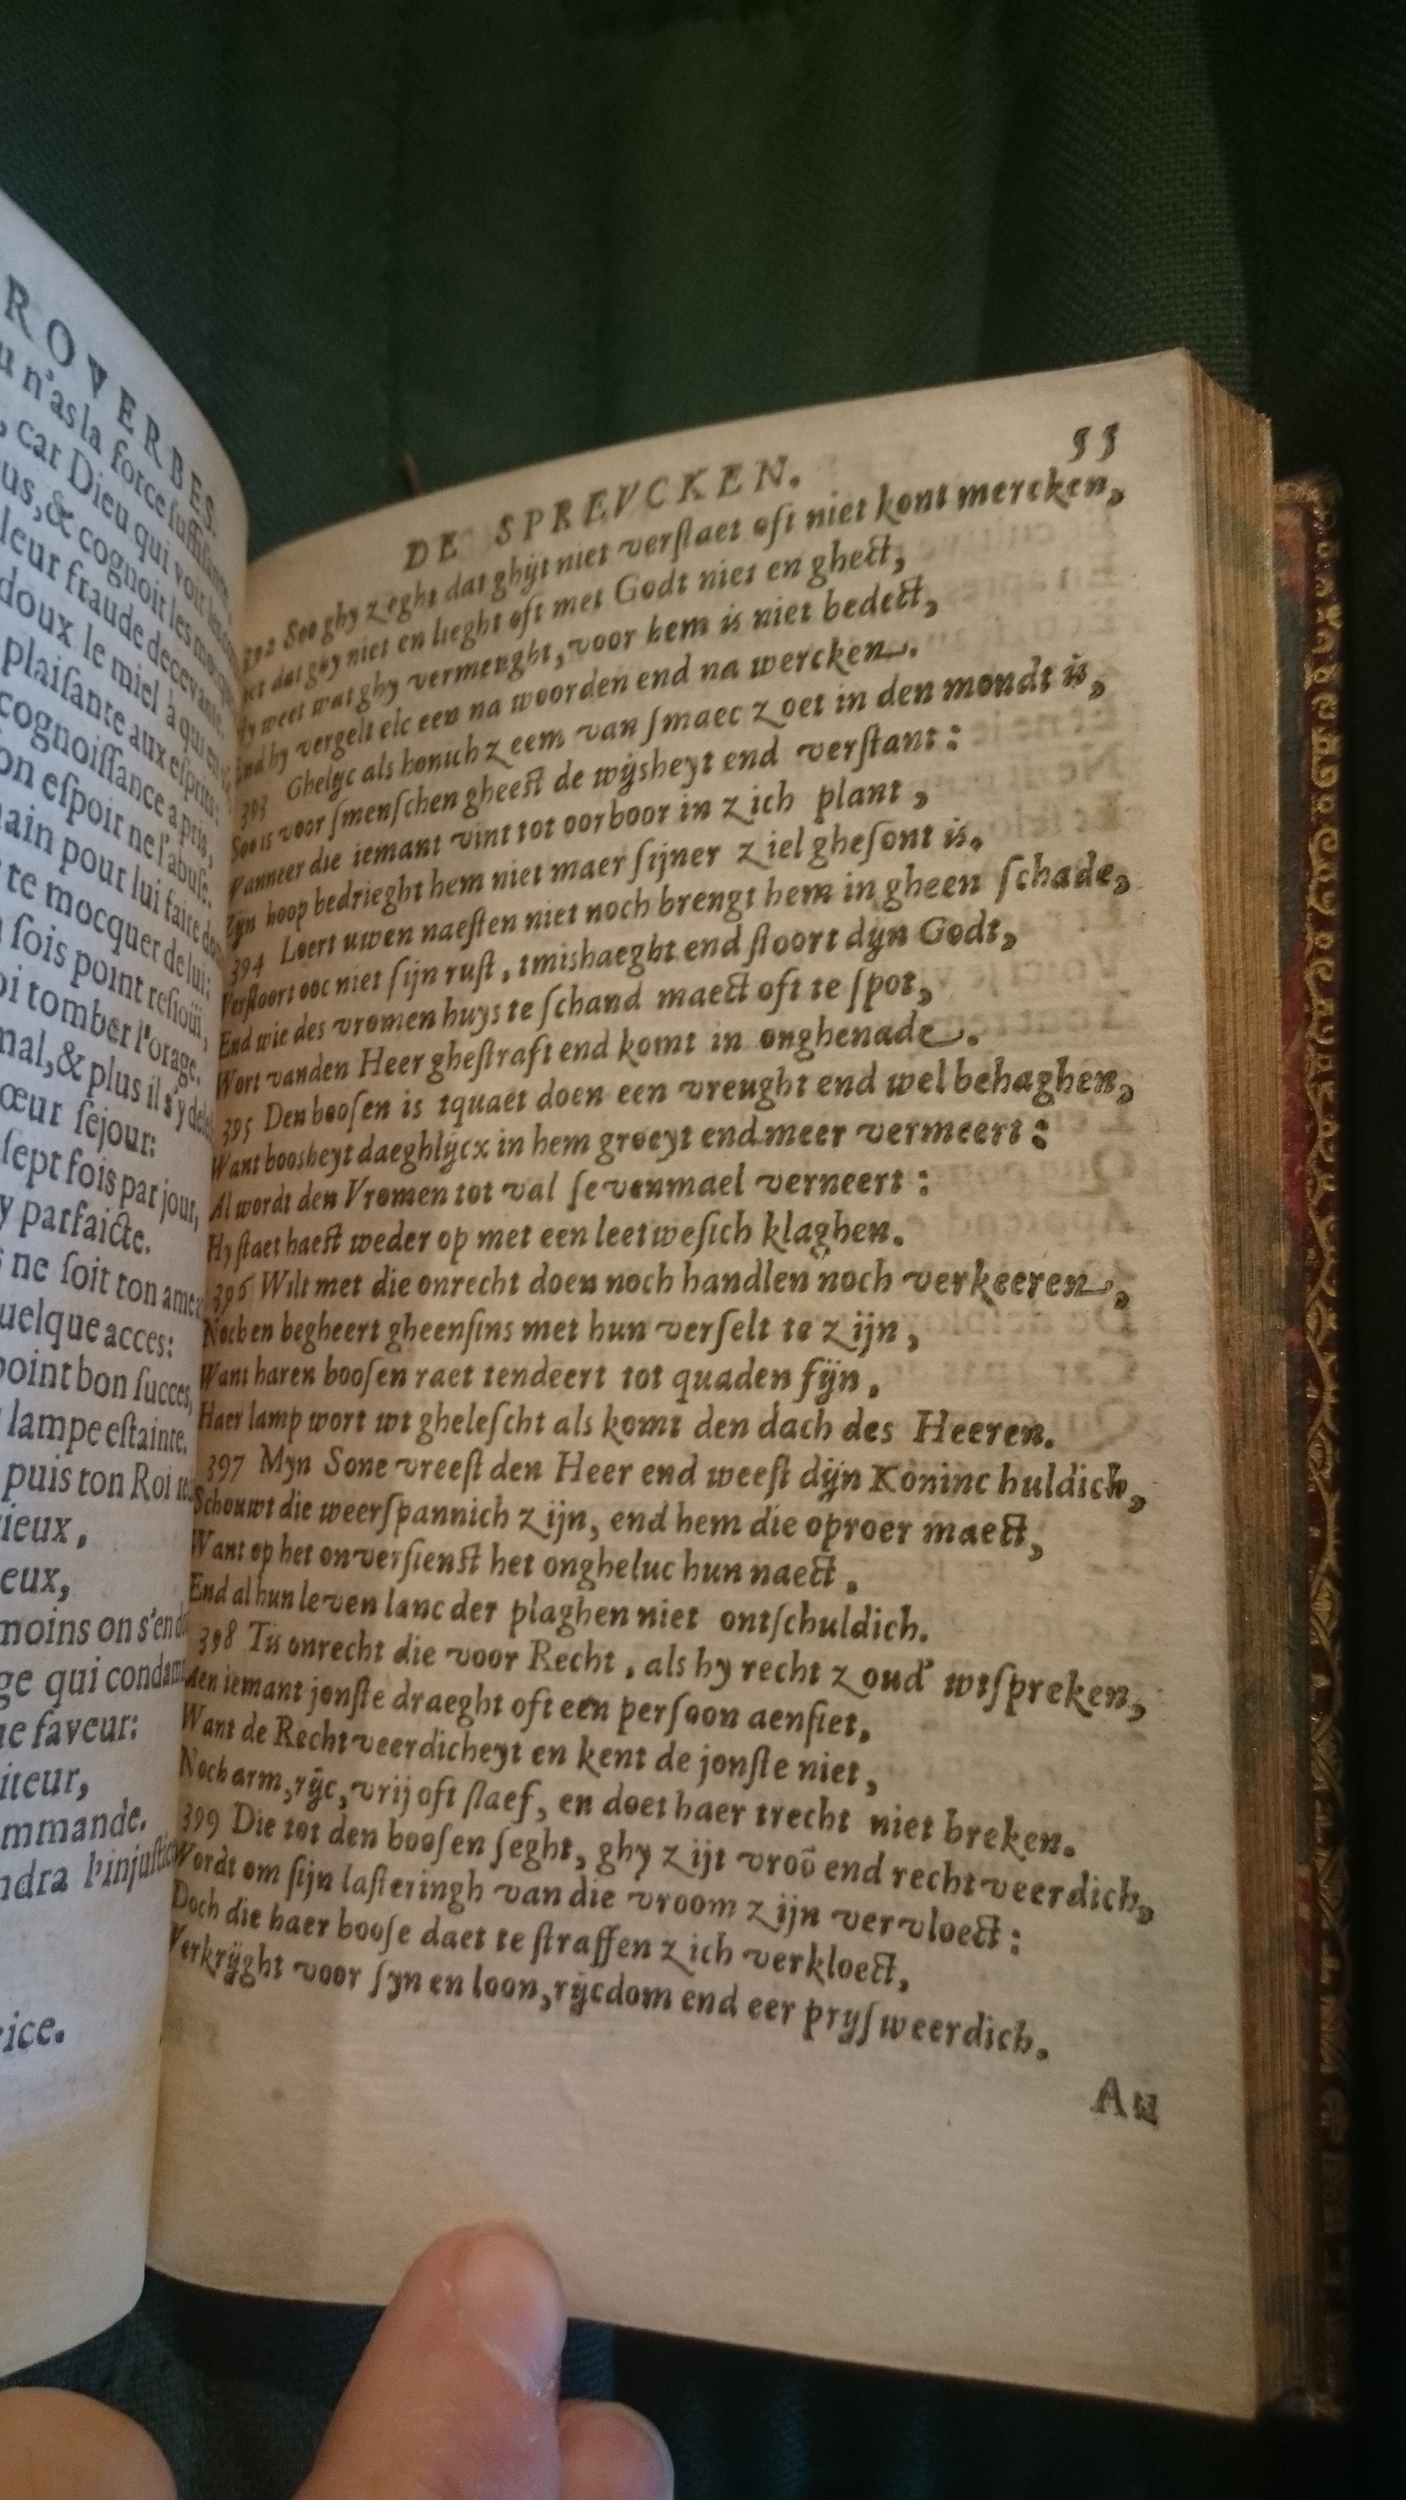 ROVERBES.
u n'as la force suffisante,
, car Dieu qui voit les
us, & cognoit les
leur fraude decevante.
doux le miel à qui en
plaisante aux esprits:
cognoissance a pris,
on espoir ne l'abuse.
ain pour lui faire
te mocquer de lui:
sois point resioüi,
oi tomber l'orage.
mal, & plus il s'y
œur sejour:
sept fois par jour,
y parfaicte.
ne soit ton
uelque acces:
point bon succes,
lampe estainte.
puis ton Roi
ieux,
eux,
moins on s'en
ge qui
ne faveur:
iteur,
mmande.
ndra l'injustice
ice.
DE SPREVCKEN. 53
392 Soo ghy zeght dat ghijt niet verstaet oft niet kont mercken,
dat ghy niet en lieght oft met Godt niet en ghect,
weet wat ghy vermenght, voor hem is niet bedect,
End hy vergelt elc een na woorden end na wercken.
393 Ghelijc als honich zeem van smaec zoet in den mondt is,
Soo is voor smenschen gheest de wijsheyt end verstant:
Wanneer die iemant vint tot oorboor in zich plant,
Zyn hoop bedrieght hem niet maer sijner ziel ghesont is.
394 Loert uwen naesten niet noch brengt hem in gheen schade,
Verstoort ooc niet sijn rust, tmishaeght end stoort dijn Godt,
End wie des vromen huys te schand maect oft te spot,
Wort vanden Heer ghestraft end komt in onghenade.
395 Den boosen is tquaet doen een vreught end wel behaghen,
Want boosheyt daeghlijcx in hem groeyt end meer vermeert:
Al wordt den Vromen tot val sevenmael verneert:
Hy staet haest weder op met een leetwesich klaghen.
396 Wilt met die onrecht doen noch handlen noch verkeeren,
Noch en begheert gheensins met hun verselt te zijn,
Want haren boosen raet tendeert tot quaden fijn,
Haer lamp wort wt ghelescht als komt den dach des Heeren.
397 Myn Sone vreest den Heer end weest dijn Koninc huldich,
Schouwt die weerspannich zijn, end hem die oproer maect,
Want op het onversienst het ongheluc hun naect,
End al hun leven lanc der plaghen niet ontschuldich.
398 Tis onrecht die voor Recht, als hy recht zoud' wtspreken,
Aen iemant jonste draeght oft een persoon aensiet,
Want de Rechtveerdicheyt en kent de jonste niet,
Noch arm, rijc, vrij oft slaef, en doet haer trecht niet breken.
399 Die tot den boosen seght, ghy zijt vroō end rechtveerdich,
Wordt om sijn lasteringh van die vroom zijn vervloect:
Doch die haer boose daet te straffen zich verkloect,
Verkrijght voor syn en loon, rijcdom end eer prysweerdich.
Au